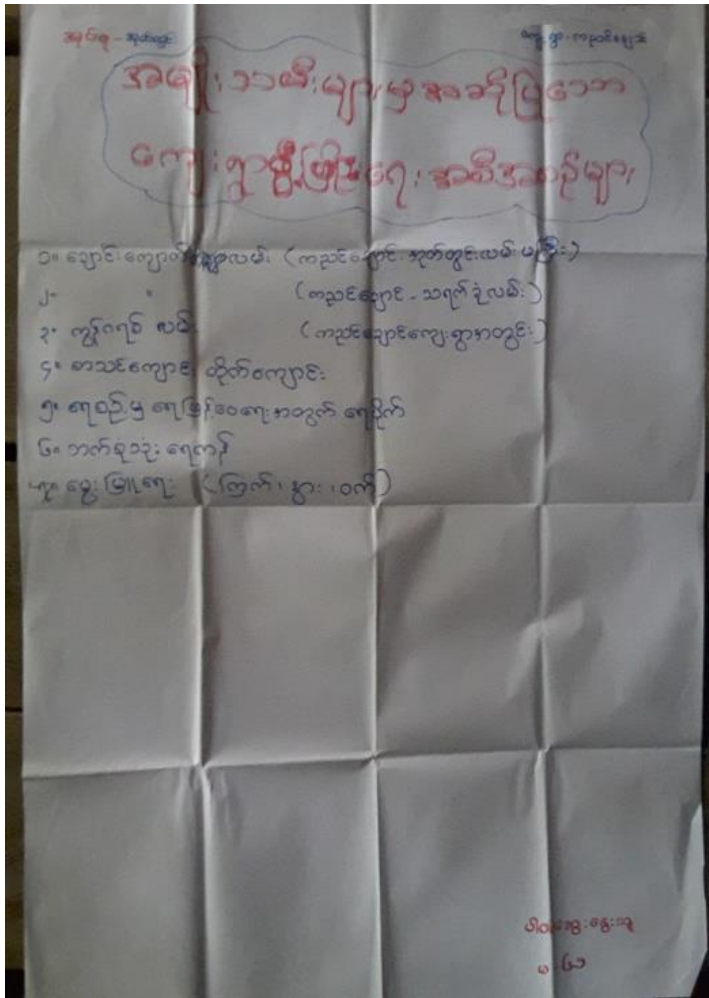 အုပ်စု - အုတ်တွင်း ကျေးရွာ - ကညင်ချောင်
အမျိုးသမီးများမှ အဆိုပြုသော
ကျေးရွာဖွံ့ဖြိုးရေး အစီအစဉ်များ
၁။ ချောင်းကျောက် လမ်း (ကညင်ချောင် - အုတ်တွင်းလမ်းမကြီး)
၂။ " (ကညင်ချောင် - သရက်ခုံလမ်း)
၃။ ကွန်ကရစ် လမ်း (ကညင်ချောင်ကျေးရွာအတွင်း)
၄။ စာသင်ကျောင်း တိုက်ကျောင်း
၅။ ရေစဉ်မှ ရေဖြန့်ဝေရေးအတွက် ရေပိုက်
၆။ ဘက်စုံသုံး ရေကန်
၇။ မွေးမြူရေး (ကြက်၊ နွား၊ ဝက်)
မ - ၆၁